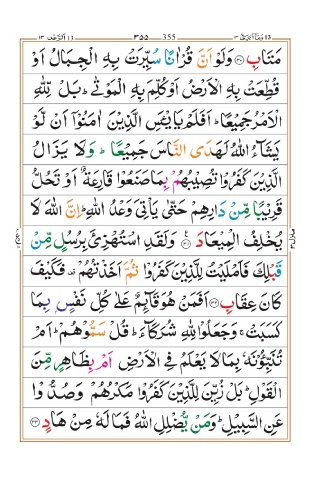 الرَّعْد ١٣ ٣٥٥ 355 وَمَآ اُبَرِّئُ ١٣
مَتَابِ ۝٣٠ وَلَوْ اَنَّ قُرْاٰنًا سُيِّرَتْ بِهِ الْجِبَالُ اَوْ
قُطِّعَتْ بِهِ الْاَرْضُ اَوْ كُلِّمَ بِهِ الْمَوْتٰى ؕ بَلْ لِّلّٰهِ
الْاَمْرُ جَمِيْعًا ؕ اَفَلَمْ يَايْـَٔسِ الَّذِيْنَ اٰمَنُوْۤا اَنْ لَّوْ
يَشَآءُ اللّٰهُ لَهَدَى النَّاسَ جَمِيْعًا ؕ وَلَا يَزَالُ
الَّذِيْنَ كَفَرُوْا تُصِيْبُهُمْ بِمَا صَنَعُوْا قَارِعَةٌ اَوْ تَحُلُّ
قَرِيْبًا مِّنْ دَارِهِمْ حَتّٰى يَاْتِيَ وَعْدُ اللّٰهِ ؕ اِنَّ اللّٰهَ لَا
يُخْلِفُ الْمِيْعَادَ ۝٣١ وَلَقَدِ اسْتُهْزِئَ بِرُسُلٍ مِّنْ
قَبْلِكَ فَاَمْلَيْتُ لِلَّذِيْنَ كَفَرُوْا ثُمَّ اَخَذْتُهُمْ ۫ فَكَيْفَ
كَانَ عِقَابِ ۝٣٢ اَفَمَنْ هُوَ قَآئِمٌ عَلٰى كُلِّ نَفْسٍۭ بِمَا
كَسَبَتْ ۚ وَجَعَلُوْا لِلّٰهِ شُرَكَآءَ ؕ قُلْ سَمُّوْهُمْ ؕ اَمْ
تُنَبِّـُٔوْنَهٗ بِمَا لَا يَعْلَمُ فِي الْاَرْضِ اَمْ بِظَاهِرٍ مِّنَ
الْقَوْلِ ؕ بَلْ زُيِّنَ لِلَّذِيْنَ كَفَرُوْا مَكْرُهُمْ وَصُدُّوْا
عَنِ السَّبِيْلِ ؕ وَمَنْ يُّضْلِلِ اللّٰهُ فَمَا لَهٗ مِنْ هَادٍ ۝٣٣